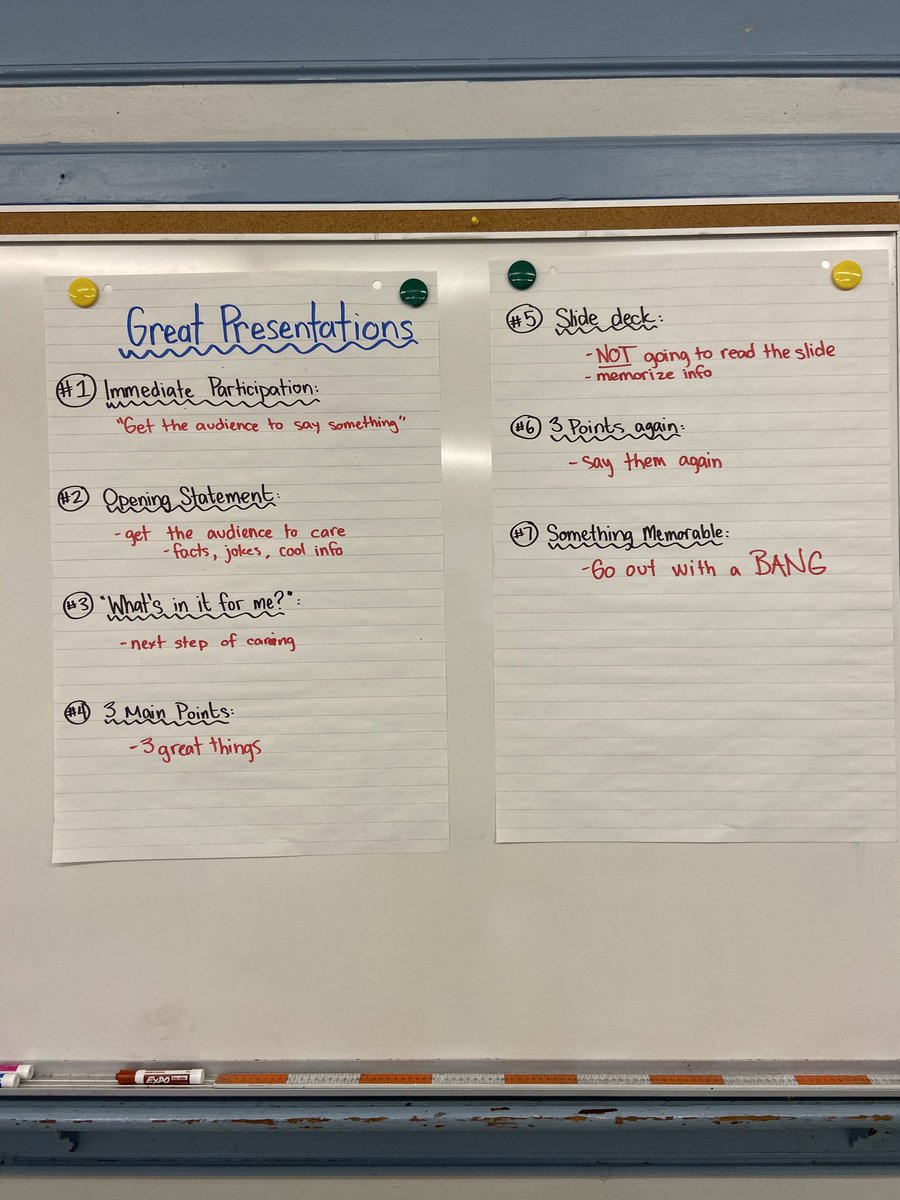 Great Presentations
#1 Immediate Participation:
"Get the audience to say something"
#2 Opening Statement:
-get the audience to care
-facts, jokes, cool info
#3 "What's in it for me?":
-next step of caring
#4 3 Main Points:
-3 great things
#5 Slide deck:
-NOT going to read the slide
-memorize info
#6 3 Points again:
-say them again
#7 Something Memorable:
-Go out with a BANG
EXPO